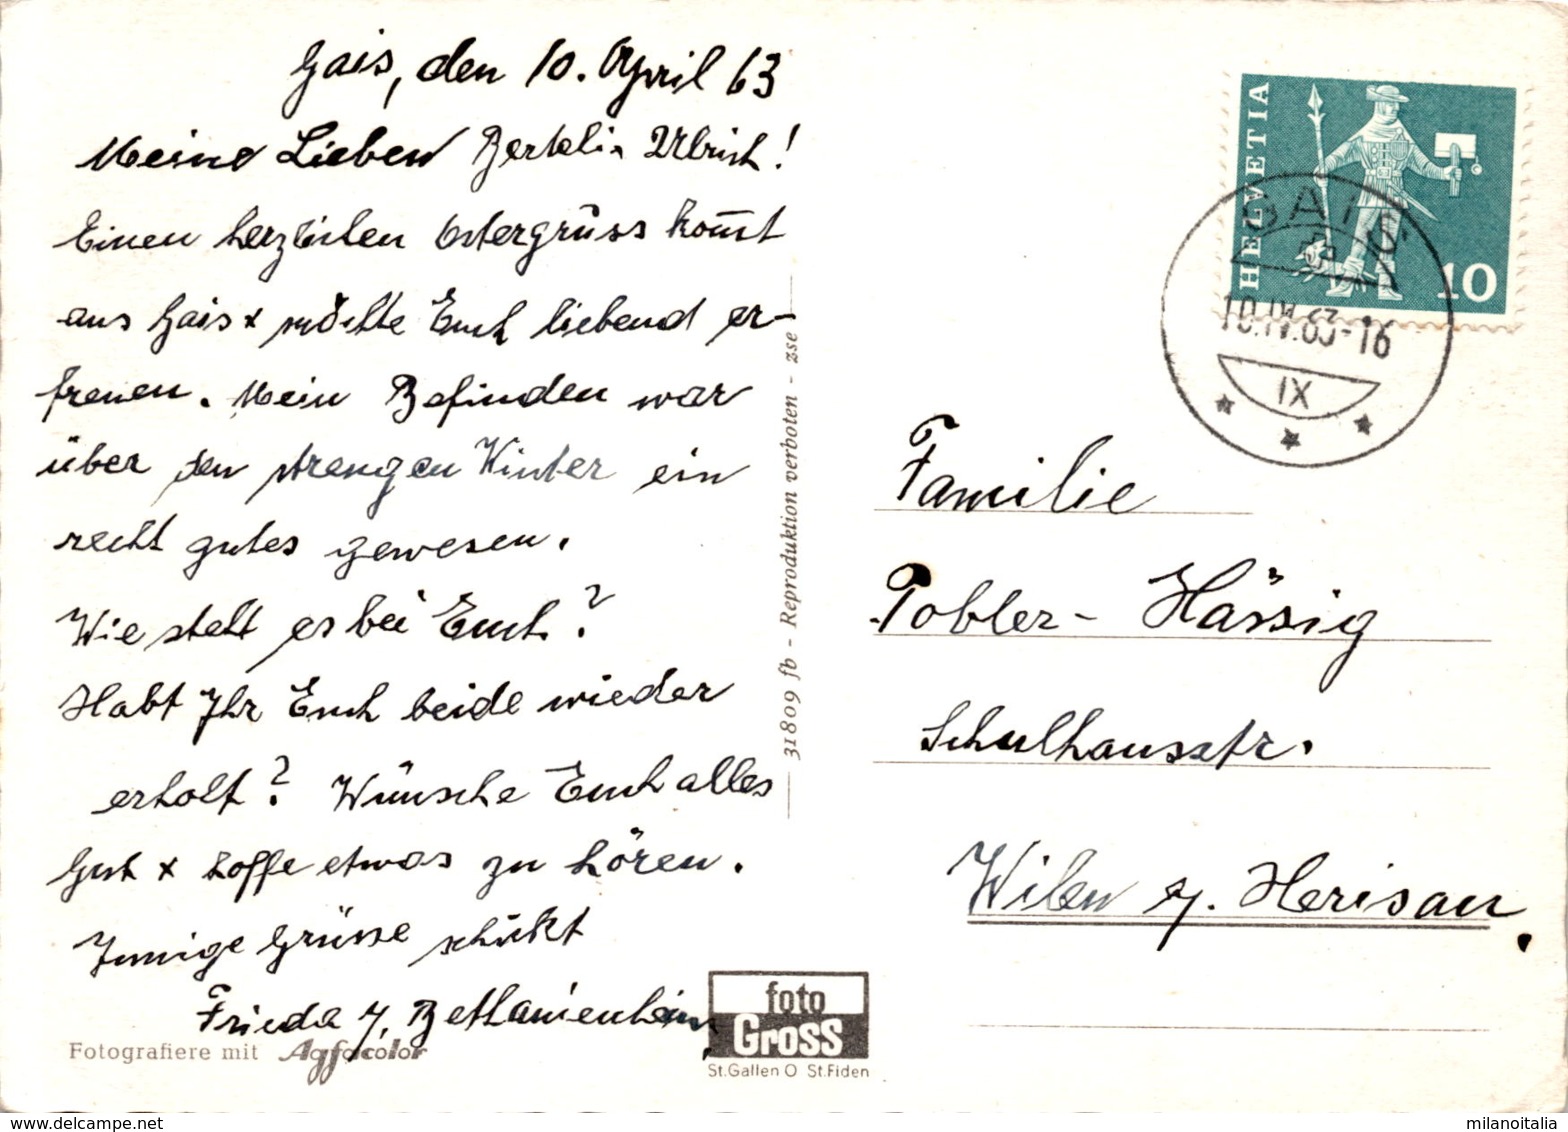 Gais, den 10. April 63
Meine Lieben Berteli x Ulrich!
Einen herzlichen Ostergrüss kom̅t
aus Gais x möchte Euch liebend er-
freuen. Mein Befinden war
über den strengen Winter ein
recht gutes gewesen.
Wie steht es bei Euch?
Habt Ihr Euch beide wieder
erholt? Wünsche Euch alles
Gut x hoffe etwas zu hören.
Innige Grüsse schickt
Frieda y. Bethanienheim
Fotografiere mit Agfacolor
foto
Gross
St.Gallen O St.Fiden
31809 fb - Reproduktion verboten - zse
HELVETIA
10
GAIS
10.IV.63-16
IX
Familie
Tobler-Hässig
Schulhausstr.
Wilen y. Herisau
www.delcampe.net
milanoitalia